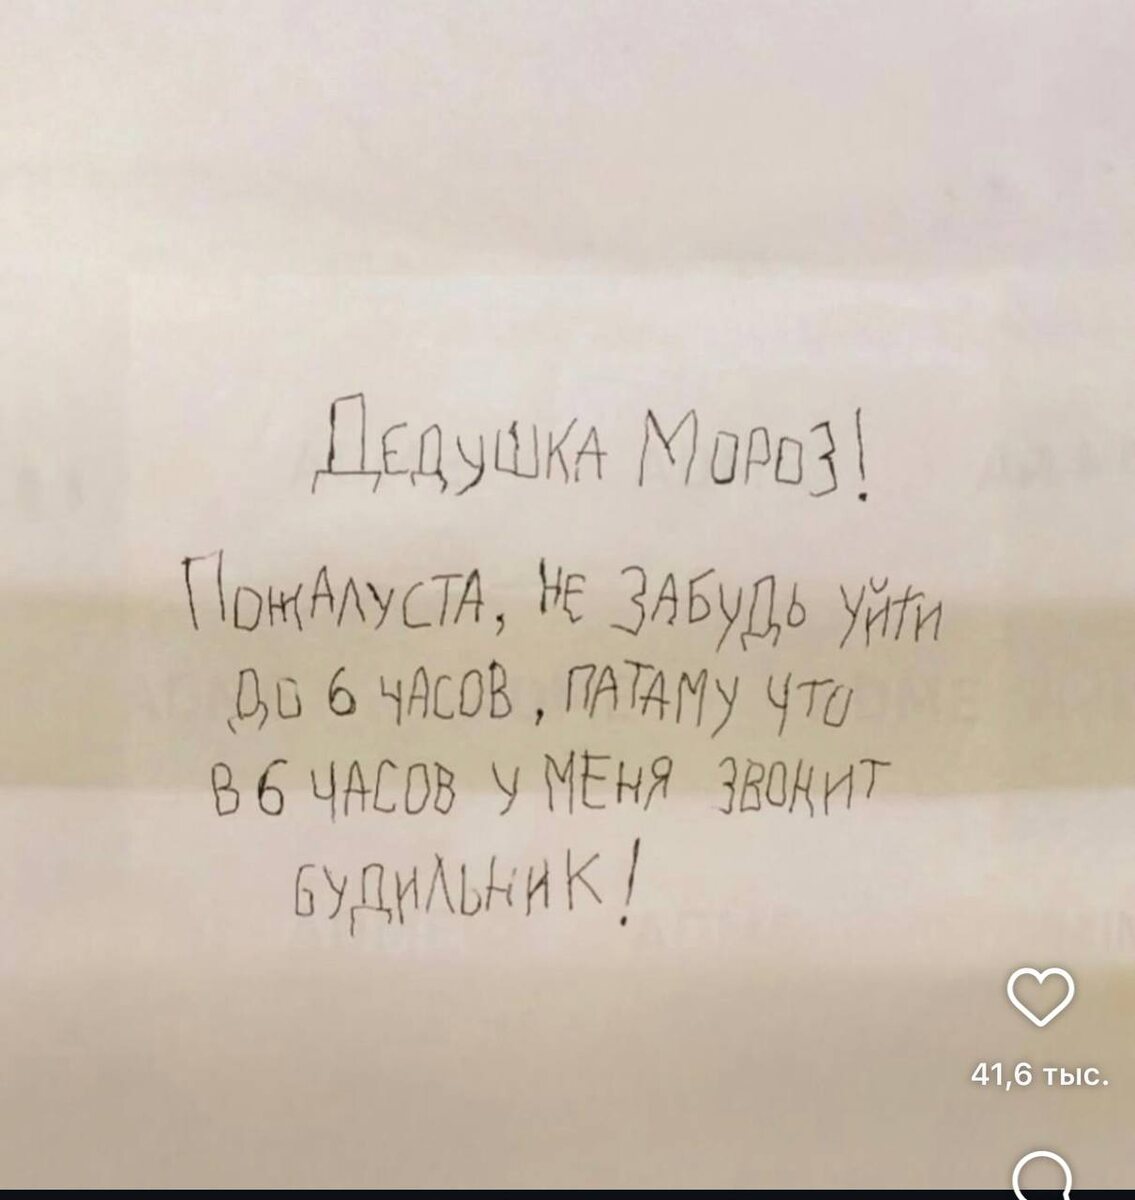 Дедушка Мороз!
Пожалуста, не забудь уйти
до 6 часов, патаму что
в 6 часов у меня звонит
будильник!
41,6 тыс.